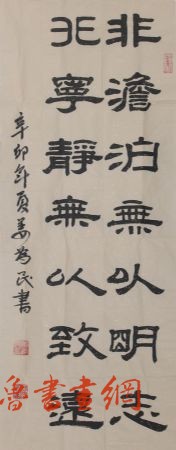 非澹泊無以明志
非寧靜無以致遠
辛卯年夏姜為民書
魯書畫網